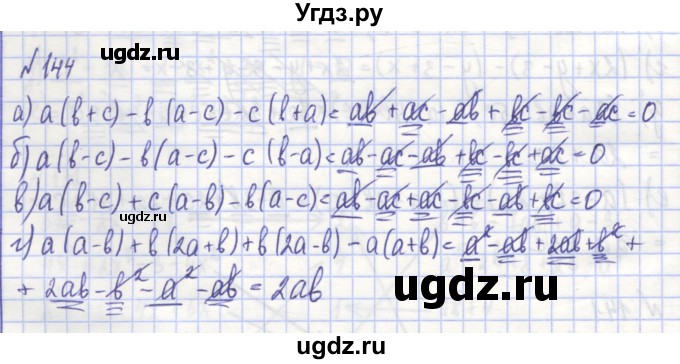 Угдз.ру
ugdz.ru
№144
а) a(b+c)-b(a-c)-c(b+a)=ab+ac-ab+bc-bc-ac=0
б) a(b-c)-b(a-c)-c(b-a)=ab-ac-ab+bc-bc+ac=0
в) a(b-c)+c(a-b)-b(a-c)=ab-ac+ac-bc-ab+bc=0
ugdz.ru
г) a(a-b)+b(2a+b)+b(2a-b)-a(a+b)=a²-ab+2ab+b²+
+2ab-b²-a²-ab=2ab
ugdz.ru
ugdz.ru
ugdz.ru